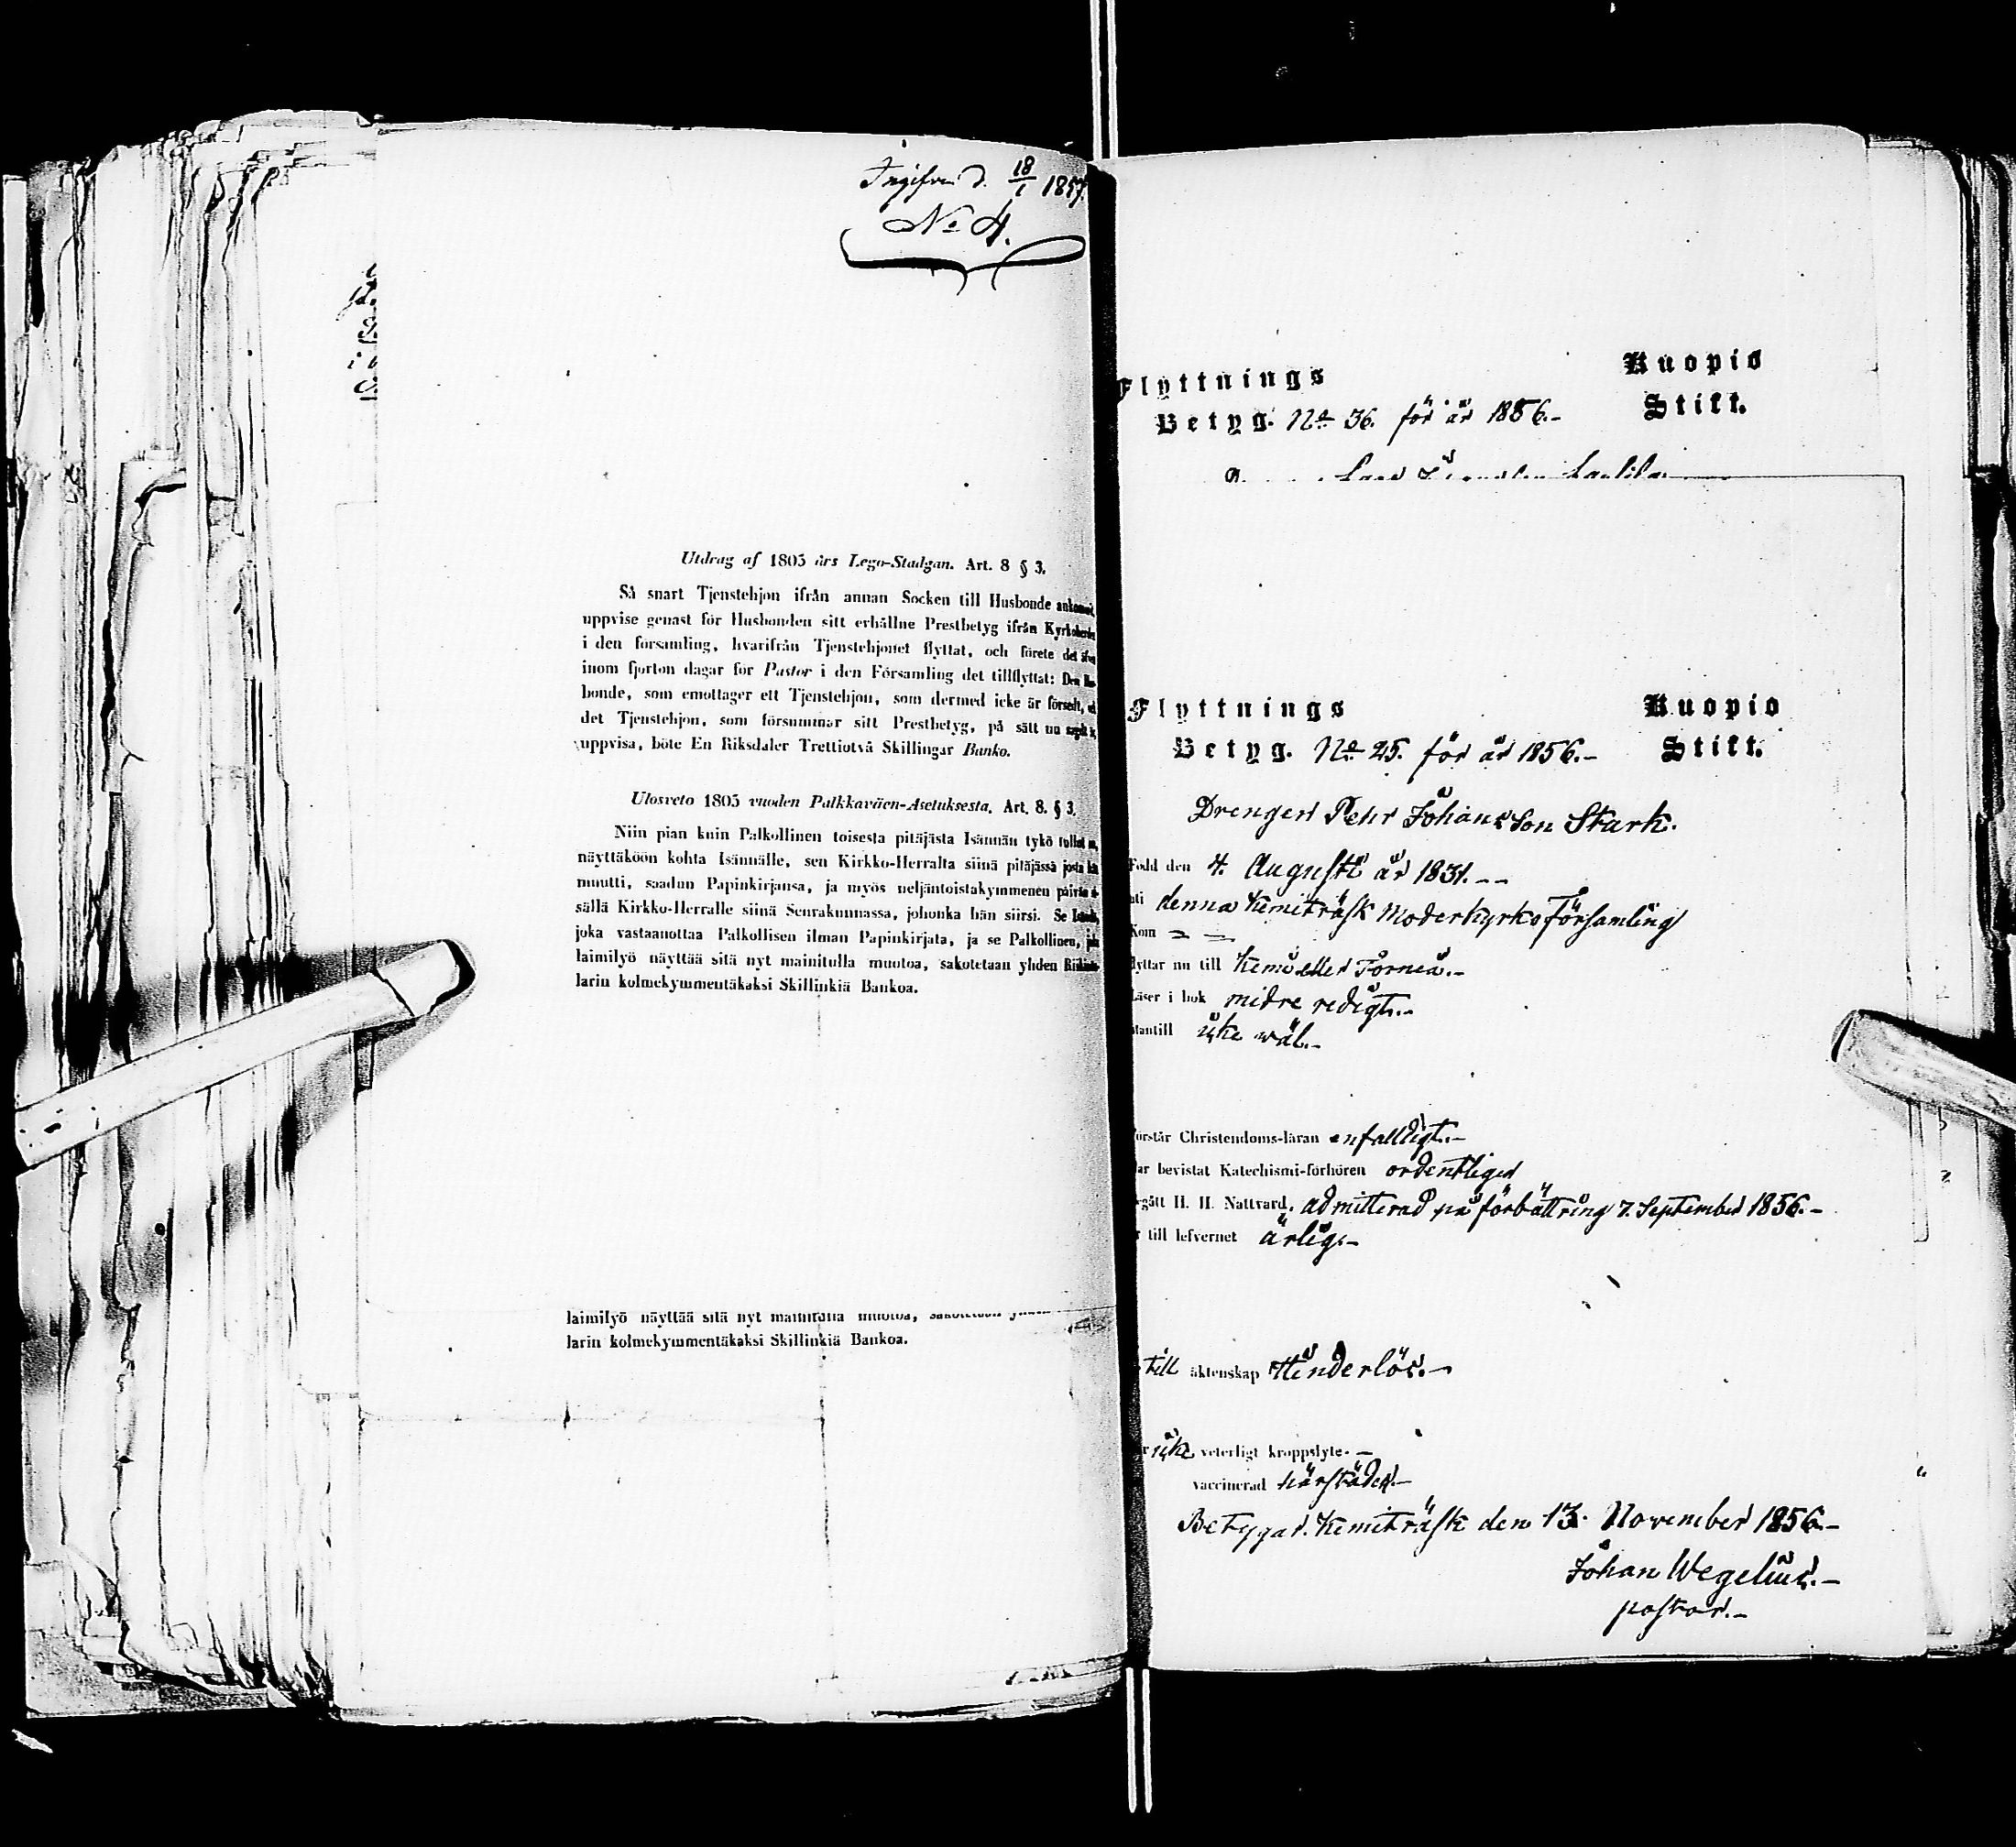 Ingifven d. 18/1 1857.
No 4.
Utdrag af 1805 års Lego-Stadgan. Art. 8 § 3.
Så snart Tjenstehjon ifrån annan Socken till Husbonde
uppvise genast för Husbonden sitt erhållne Prestbetyg ifrån
i den församling, hvarifrån Tjenstehjonet flyttat, och förete det
inom fjorton dagar för Pastor i den Församling det tillflyttat: Den
bonde, som emottager ett Tjenstehjon, som dermed icke är försedt,
det Tjenstehjon, som försummar sitt Prestbetyg, på sätt nu
uppvisa, böte En Riksdaler Trettiotvå Skillingar Banko.
Ulosveto 1805 vuoden Palkkaväen-Asetuksesta. Art. 8. § 3.
Niin pian kuin Palkollinen toisesta pitäjästä Isännän tykö
näyttäköön kohta Isännälle, sen Kirkko-Herralta siinä pitäjässä josta
muutti, saadun Papinkirjansa, ja myös neljäntoistakymmenen
sällä Kirkko-Herralle siinä Seurakunnassa, johonka hän siirsi. Se
joka vastaanottaa Palkollisen ilman Papinkirjata, ja se Palkollinen,
laimilyö näyttää sitä nyt mainitulla muotoa, sakotetaan yhden
larin kolmekymmentäkaksi Skillinkiä Bankoa.
laimilyö näyttää sitä nyt mainitulla muotoa,
larin kolmekymmentäkaksi Skillinkiä Bankoa.
Flyttnings Kuopio
Betyg. No 36. för år 1856.- Stift.
Flyttnings Kuopio
Betyg. No 25. för år 1856.- Stift.
Drengen Pehr Johansson Stark.
Född den 4. Augusti år 1831.--
uti denna Kemiträsk Moderkyrko Församling
Kom
flyttar nu till Kemi eller Torneå.-
Läser i bok midre redigt.-
utantill icke wäl.-
förstår Christendoms-läran enfaldigt.-
har bevistat Katechismi-förhören ordentliger
begått H. H. Nattvard. admitterad på förbättring 7. September 1856.-
till lefvernet ärlig.-
till äktenskap Hinderlös.-
icke veterligt kroppslyte.-
vaccinerad härstädes.-
Betygar. Kemiträsk den 13. November 1856.-
Johan Wegelius.-
pastor.-